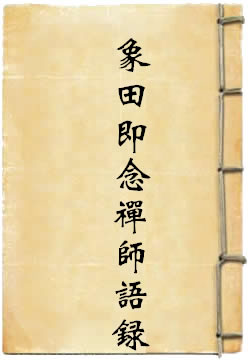 象田即念禪師語録